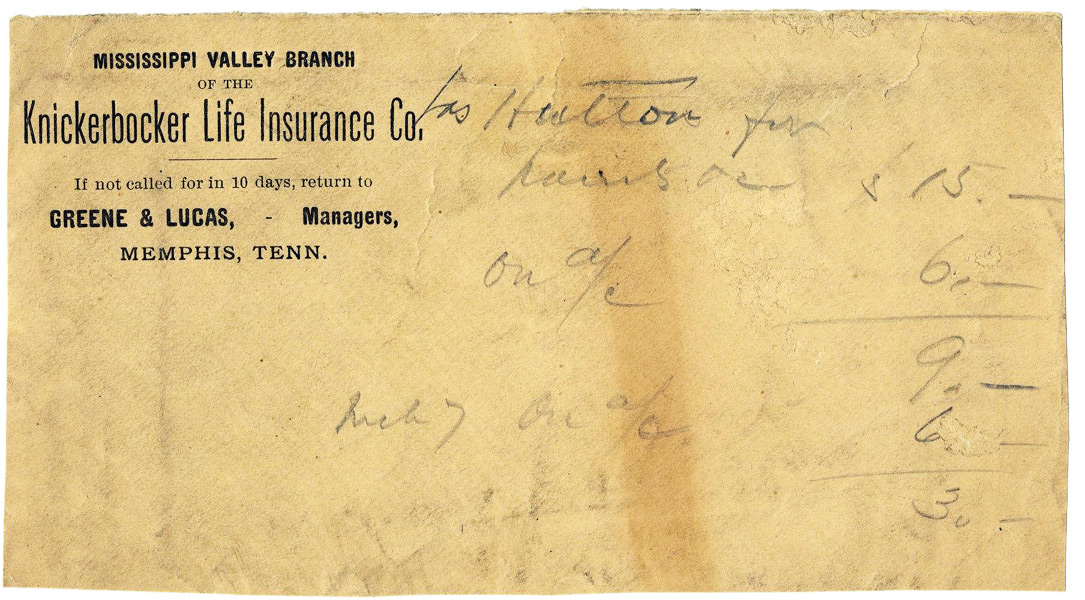 MISSISSIPPI VALLEY BRANCH
OF THE
Knickerbocker Life Insurance Co.
If not called for in 10 days, return to
GREENE & LUCAS, - Managers,
MEMPHIS, TENN.
Jas Hutton for
$ 15.—
On a/c 6.—
9.—
Mch 7 On a/c 6 —
3.—